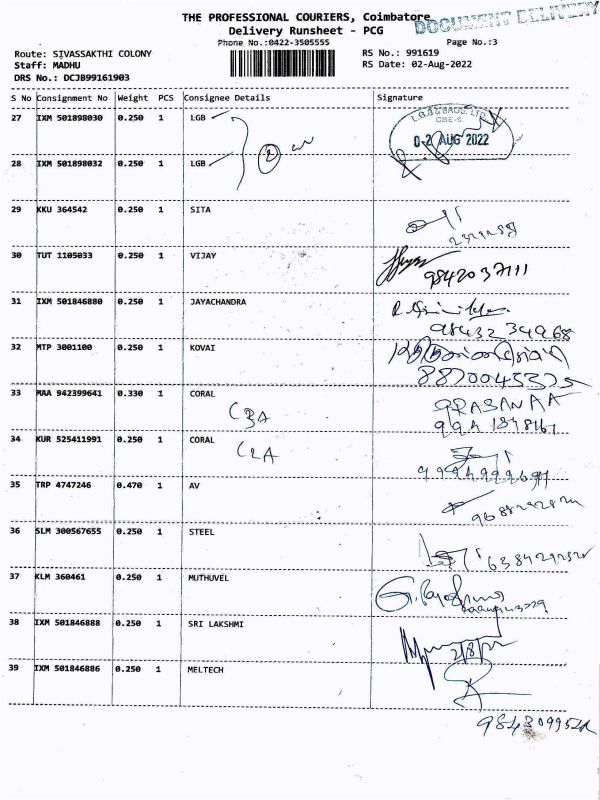 THE PROFESSIONAL COURIERS, Coimbatore
DOCUMENT DELIVERY
Delivery Runsheet - PCG
Phone No.:0422-3505555
Page No.:3
Route: SIVASSAKTHI COLONY
RS No.: 991619
Staff: MADHU
RS Date: 02-Aug-2022
DRS No.: DCJB99161903
S No Consignment No Weight PCS Consignee Details Signature
27 IXM 501898030 0.250 1 LGB
L.G.B & BROS. LTD
CBE-6.
02 AUG 2022
2
28 IXM 501898032 0.250 1 LGB
29 KKU 364542 0.250 1 SITA
30 TUT 1105033 0.250 1 VIJAY
9842037111
31 IXM 501846880 0.250 1 JAYACHANDRA
98432 34968
32 MTP 3001100 0.250 1 KOVAI
8870045375
33 MAA 942399641 0.330 1 CORAL
C3A
PRASANAA
34 KUR 525411991 0.250 1 CORAL
C2A
35 TRP 4747246 0.470 1 AV
36 SLM 300567655 0.250 1 STEEL
37 KLM 360461 0.250 1 MUTHUVEL
38 IXM 501846888 0.250 1 SRI LAKSHMI
39 IXM 501846886 0.250 1 MELTECH